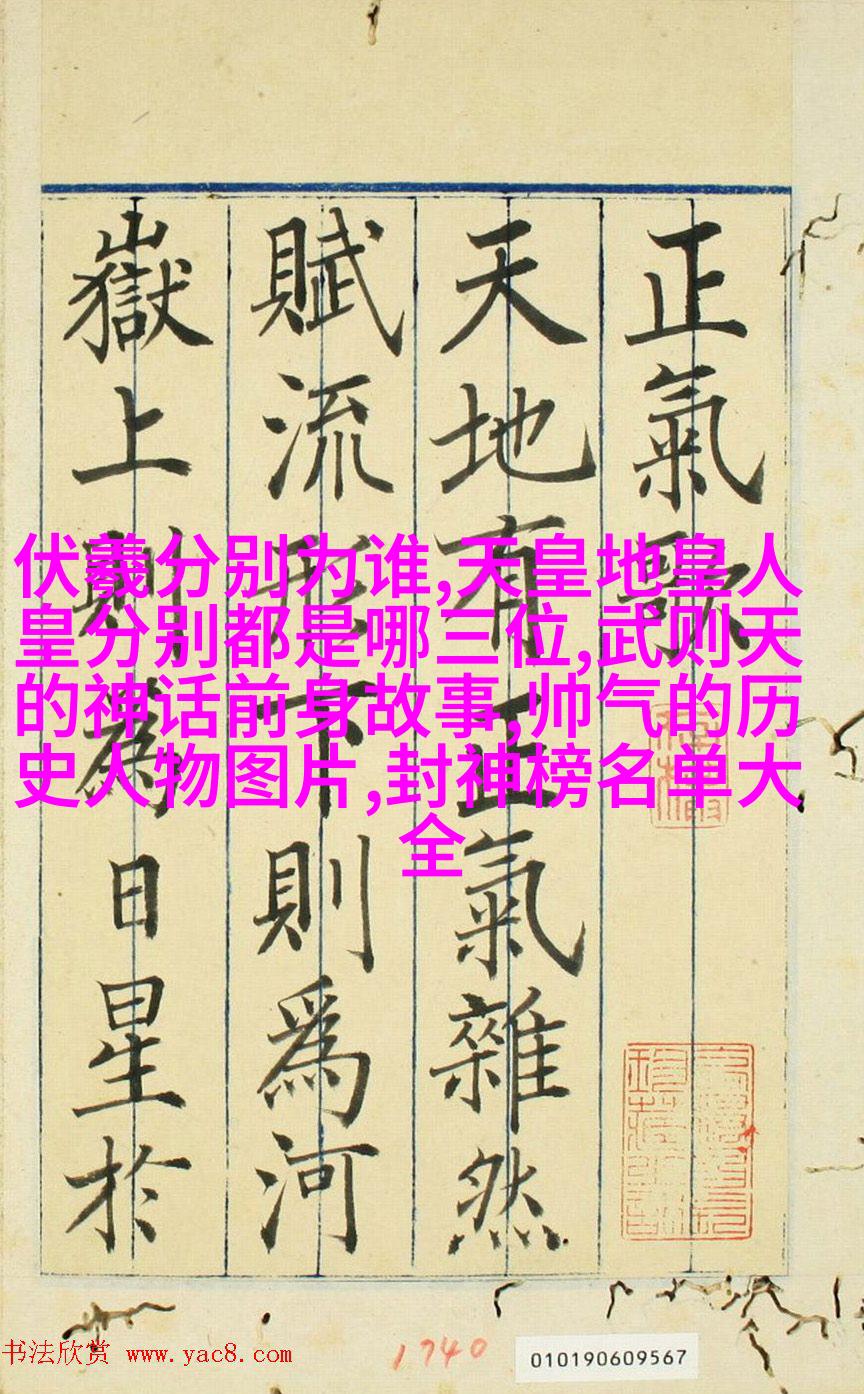 正氣歌
天地有正氣雜然
賦流形下則為河
嶽上則為日星於
伏羲分别为谁,天皇地皇人
皇分别都是哪三位,武则天
的神话前身故事,帅气的历
史人物图片,封神榜名单大
全
书法欣赏 www.yac8.com
1740
010190609567